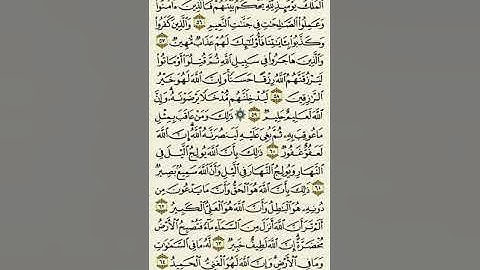 ٱلْمُلْكُ يَوْمَئِذٍ لِّلَّهِ يَحْكُمُ بَيْنَهُمْ فَٱلَّذِينَ ءَامَنُوا۟
وَعَمِلُوا۟ ٱلصَّٰلِحَٰتِ فِى جَنَّٰتِ ٱلنَّعِيمِ ٥٦ وَٱلَّذِينَ كَفَرُوا۟
وَكَذَّبُوا۟ بِـَٔايَٰتِنَا فَأُو۟لَٰٓئِكَ لَهُمْ عَذَابٌ مُّهِينٌ ٥٧
وَٱلَّذِينَ هَاجَرُوا۟ فِى سَبِيلِ ٱللَّهِ ثُمَّ قُتِلُوٓا۟ أَوْ مَاتُوا۟
لَيَرْزُقَنَّهُمُ ٱللَّهُ رِزْقًا حَسَنًا وَإِنَّ ٱللَّهَ لَهُوَ خَيْرُ
ٱلرَّٰزِقِينَ ٥٨ لَيُدْخِلَنَّهُم مُّدْخَلًا يَرْضَوْنَهُۥ وَإِنَّ
ٱللَّهَ لَعَلِيمٌ حَلِيمٌ ٥٩ ۞ ذَٰلِكَ وَمَنْ عَاقَبَ بِمِثْلِ
مَا عُوقِبَ بِهِۦ ثُمَّ بُغِىَ عَلَيْهِ لَيَنصُرَنَّهُ ٱللَّهُ إِنَّ ٱللَّهَ
لَعَفُوٌّ غَفُورٌ ٦٠ ذَٰلِكَ بِأَنَّ ٱللَّهَ يُولِجُ ٱلَّيْلَ فِى
ٱلنَّهَارِ وَيُولِجُ ٱلنَّهَارَ فِى ٱلَّيْلِ وَأَنَّ ٱللَّهَ سَمِيعٌۢ بَصِيرٌ
٦١ ذَٰلِكَ بِأَنَّ ٱللَّهَ هُوَ ٱلْحَقُّ وَأَنَّ مَا يَدْعُونَ مِن
دُونِهِۦ هُوَ ٱلْبَٰطِلُ وَأَنَّ ٱللَّهَ هُوَ ٱلْعَلِىُّ ٱلْكَبِيرُ ٦٢
أَلَمْ تَرَ أَنَّ ٱللَّهَ أَنزَلَ مِنَ ٱلسَّمَآءِ مَآءً فَتُصْبِحُ ٱلْأَرْضُ
مُخْضَرَّةً إِنَّ ٱللَّهَ لَطِيفٌ خَبِيرٌ ٦٣ لَّهُۥ مَا فِى ٱلسَّمَٰوَٰتِ
وَمَا فِى ٱلْأَرْضِ وَإِنَّ ٱللَّهَ لَهُوَ ٱلْغَنِىُّ ٱلْحَمِيدُ ٦٤